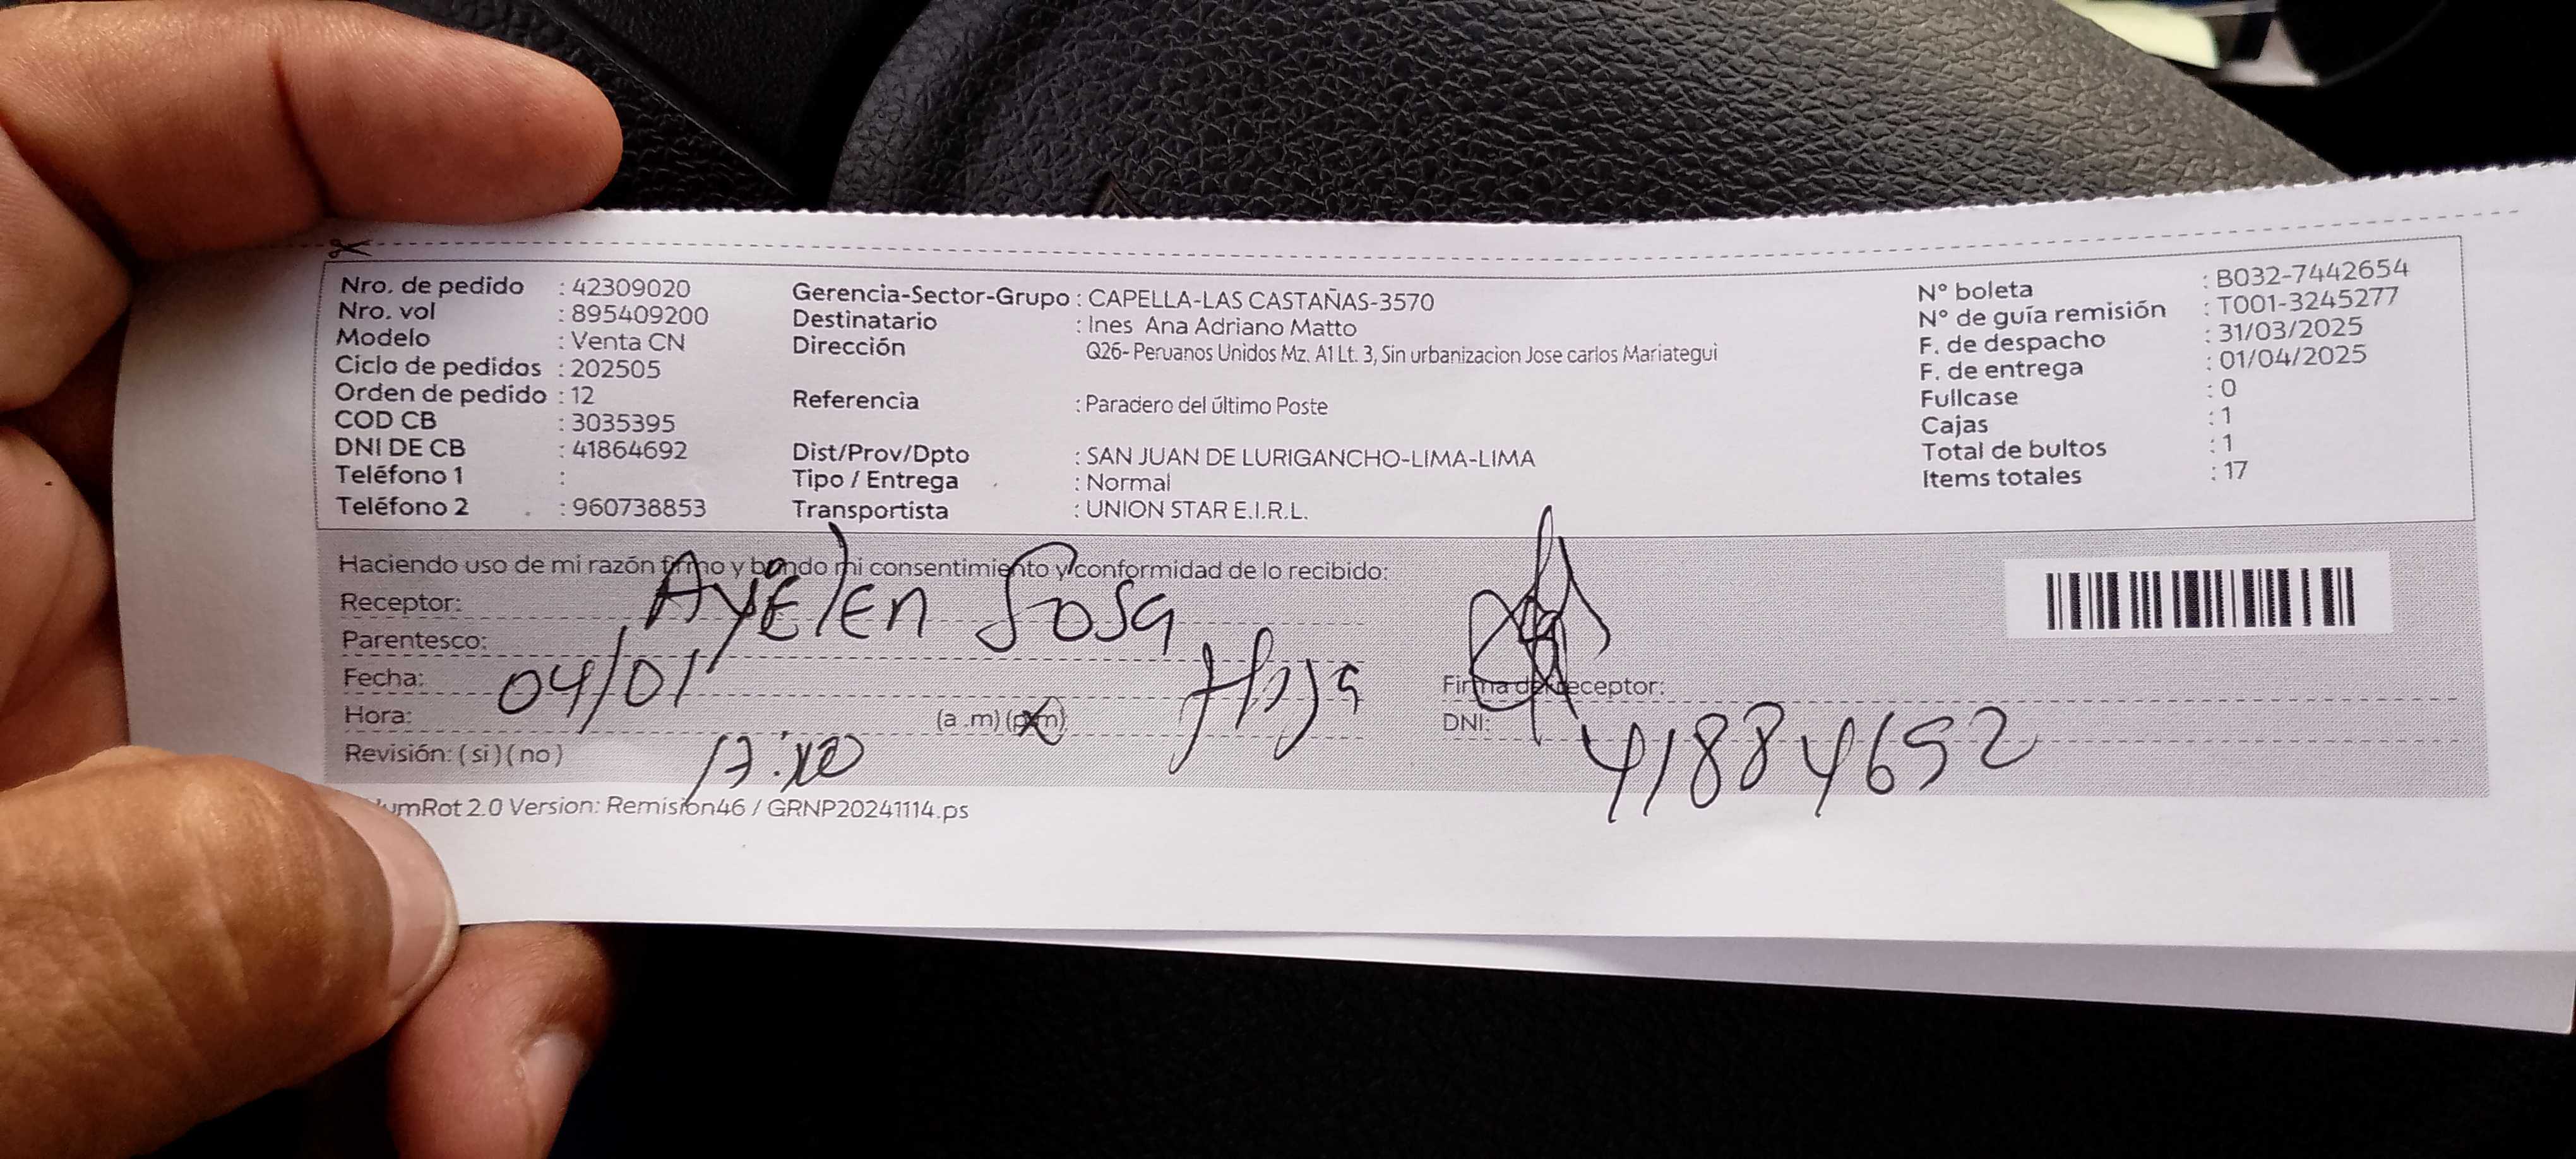 Nro. de pedido : 42309020
Nro. vol : 895409200
Modelo : Venta CN
Ciclo de pedidos : 202505
Orden de pedido : 12
COD CB : 3035395
DNI DE CB : 41864692
Teléfono 1 :
Teléfono 2 : 960738853
Gerencia-Sector-Grupo : CAPELLA-LAS CASTAÑAS-3570
Destinatario : Ines Ana Adriano Matto
Dirección Q26- Peruanos Unidos Mz. A1 Lt. 3, Sin urbanizacion Jose carlos Mariategui
Referencia : Paradero del último Poste
Dist/Prov/Dpto : SAN JUAN DE LURIGANCHO-LIMA-LIMA
Tipo / Entrega : Normal
Transportista : UNION STAR E.I.R.L.
N° boleta : B032-7442654
N° de guía remisión : T001-3245277
F. de despacho : 31/03/2025
F. de entrega : 01/04/2025
Fullcase : 0
Cajas : 1
Total de bultos : 1
Items totales : 17
Haciendo uso de mi razón firmo y brindo mi consentimiento y conformidad de lo recibido:
Receptor: Ayelen Sosa
Parentesco: Hija
Fecha: 04/01
Hora: (a .m) (p.m)
Revisión: ( si ) ( no )
Firma del receptor:
DNI: 41884692
umRot 2.0 Version: Remision46 / GRNP20241114.ps